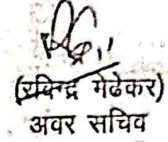 (रविन्द्र गेढेकर)
अवर सचिव